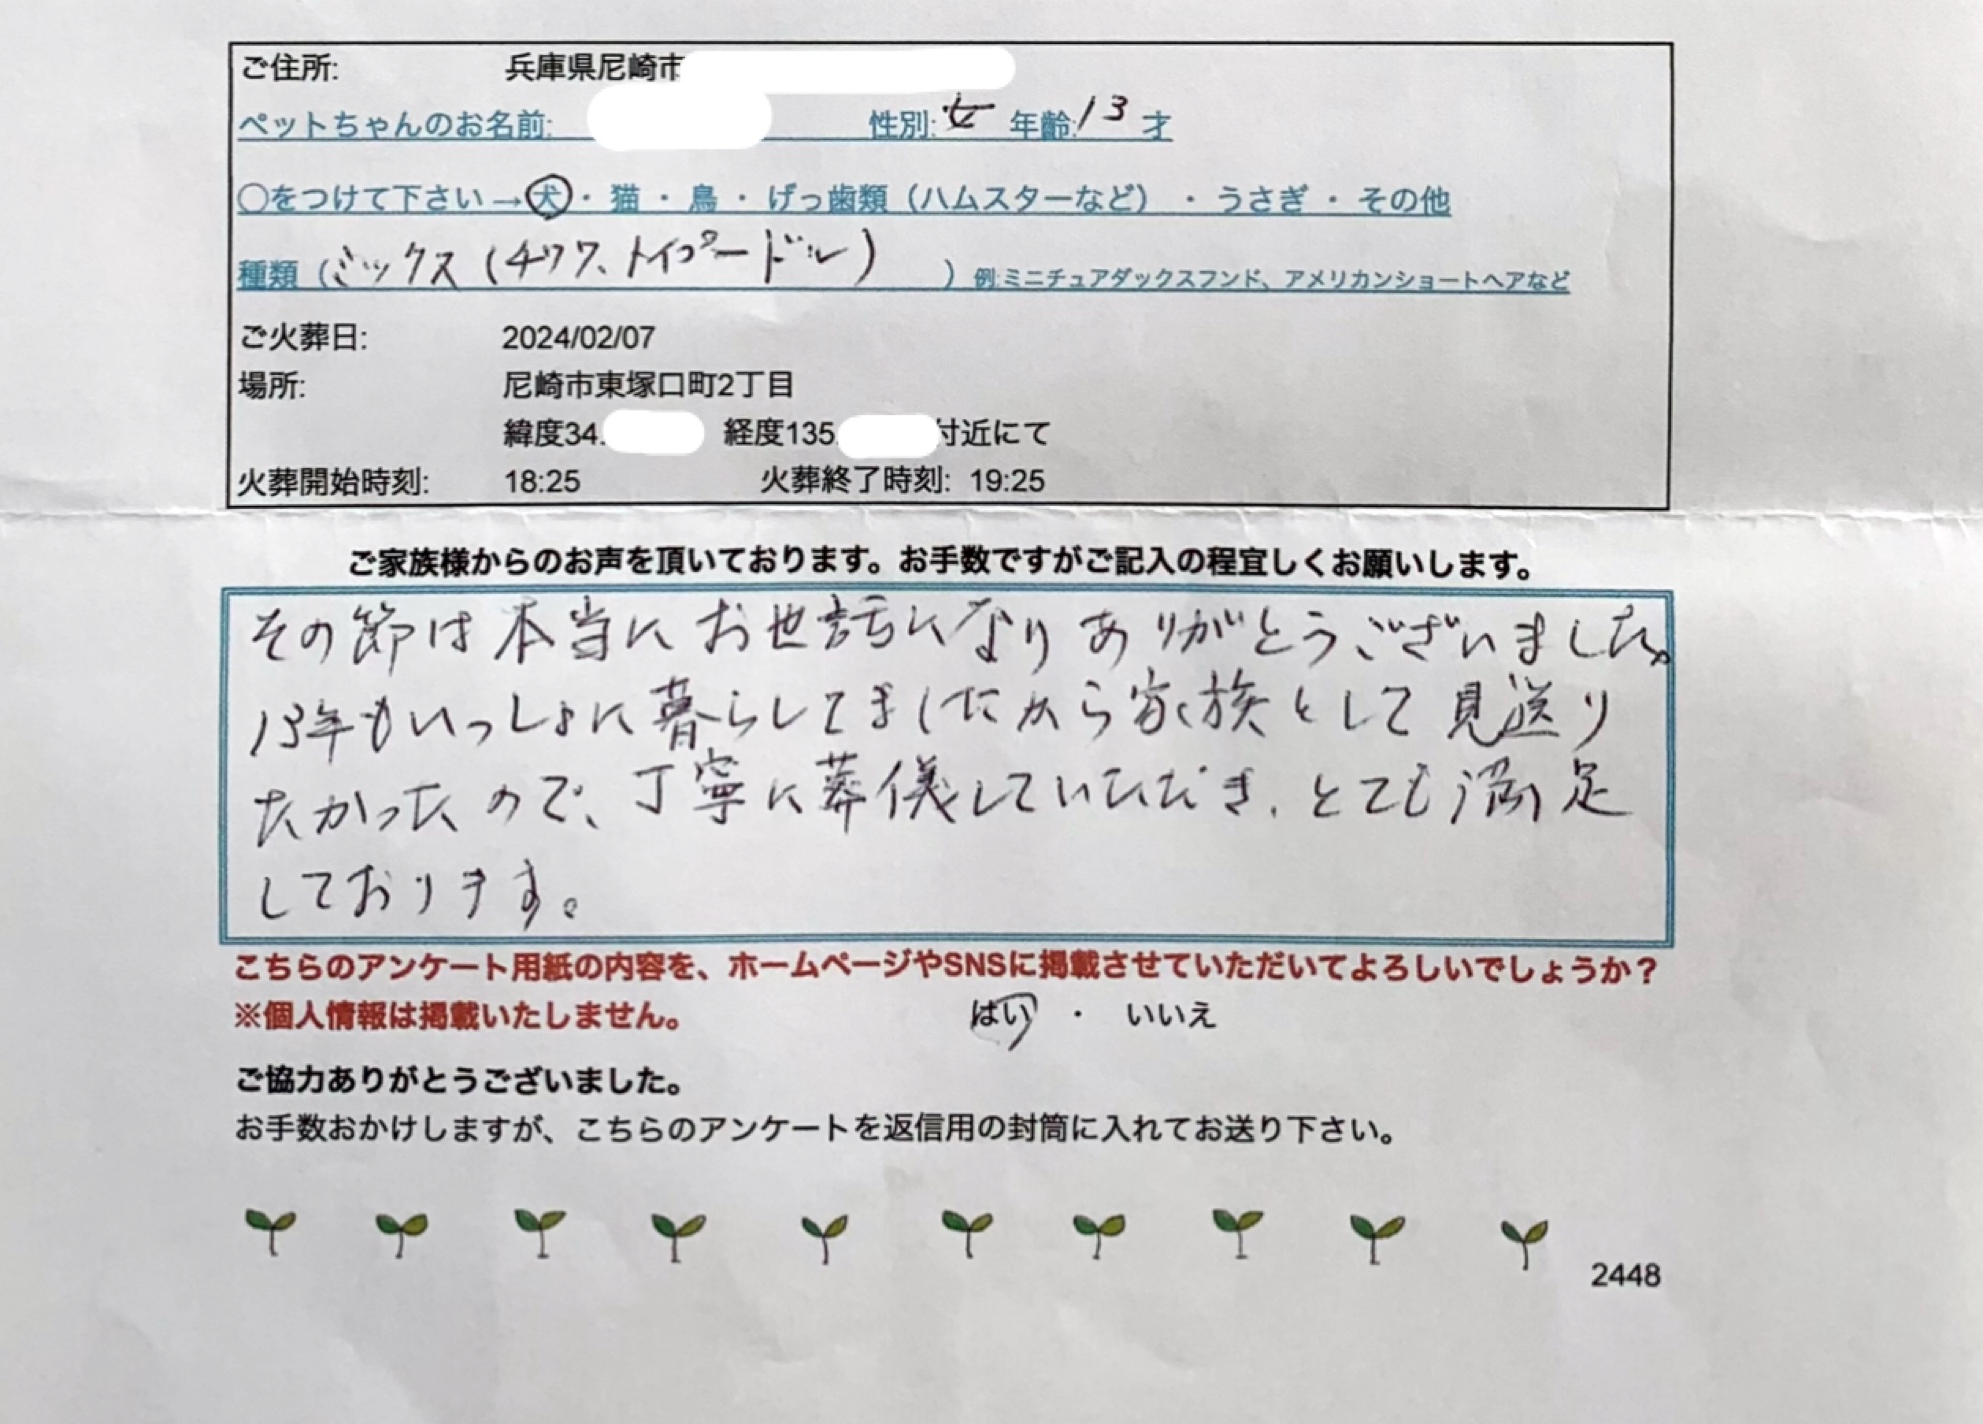 ご住所: 兵庫県尼崎市
ペットちゃんのお名前: 性別:女 年齢:13才
○をつけて下さい→犬・猫・鳥・げっ歯類（ハムスターなど）・うさぎ・その他
種類（ミックス(チワワ、トイプードル)）例:ミニチュアダックスフンド、アメリカンショートヘアなど
ご火葬日: 2024/02/07
場所: 尼崎市東塚口町2丁目
緯度34. 経度135. 付近にて
火葬開始時刻: 18:25 火葬終了時刻: 19:25
ご家族様からのお声を頂いております。お手数ですがご記入の程宜しくお願いします。
その節は本当にお世話になりありがとうございました。
13年もいっしょに暮らしてましたから家族として見送り
たかったので、丁寧に葬儀していただき、とても満足
しております。
こちらのアンケート用紙の内容を、ホームページやSNSに掲載させていただいてよろしいでしょうか？
※個人情報は掲載いたしません。 はい ・ いいえ
ご協力ありがとうございました。
お手数おかけしますが、こちらのアンケートを返信用の封筒に入れてお送り下さい。
2448